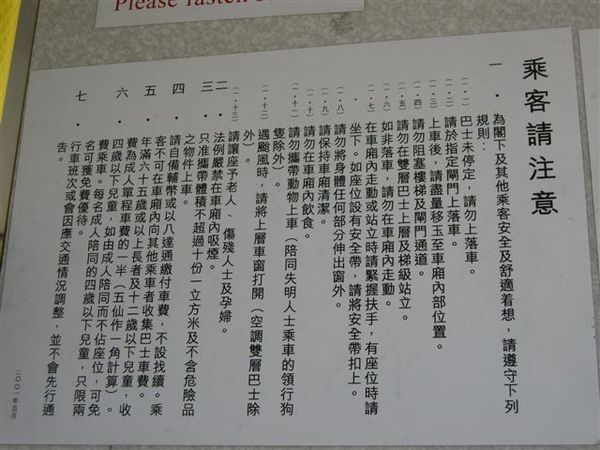 Please fasten
乘客請注意
一．為閣下及其他乘客安全及舒適着想，請遵守下列
規則：
(一.一)巴士未停定，請勿上落車。
(一.二)請於指定閘門上落車。
(一.三)上車後，請盡量移玉至車廂內部位置。
(一.四)請勿阻塞樓梯及閘門通道。
(一.五)請勿在雙層巴士上層及梯級站立。
(一.六)如非落車，請勿在車廂內走動。
(一.七)在車廂內走動或站立時請緊握扶手，有座位時請
坐下。如座位設有安全帶，請將安全帶扣上。
(一.八)請勿將身體任何部分伸出窗外。
(一.九)請保持車廂清潔。
(一.十)請勿在車廂內飲食。
(一.十一)請勿攜帶動物上車（陪同失明人士乘車的領行狗
隻除外）。
(一.十二)遇颱風時，請將上層車窗打開（空調雙層巴士除
外）。
(一.十三)請讓座予老人、傷殘人士及孕婦。
二．法例嚴禁在車廂內吸煙。
三．只准攜帶體積不超過十份一立方米及不含危險品
之物件上車。
四．請自備輔幣或以八達通繳付車費，不設找續。乘
客不可在車廂內向其他乘車者收集巴士車費。
五．年滿六十五歲或以上長者及十二歲以下兒童，收
費為成人單程車費的一半（五仙作一角計算）。
六．四歲以下兒童，如由成人陪同而不佔座位，可免
費乘車。每名成人陪同的四歲以下兒童，只限兩
名可獲免費優待。
七．行車班次或會因應交通情況調整，並不會先行通
告。
二〇〇一年五月